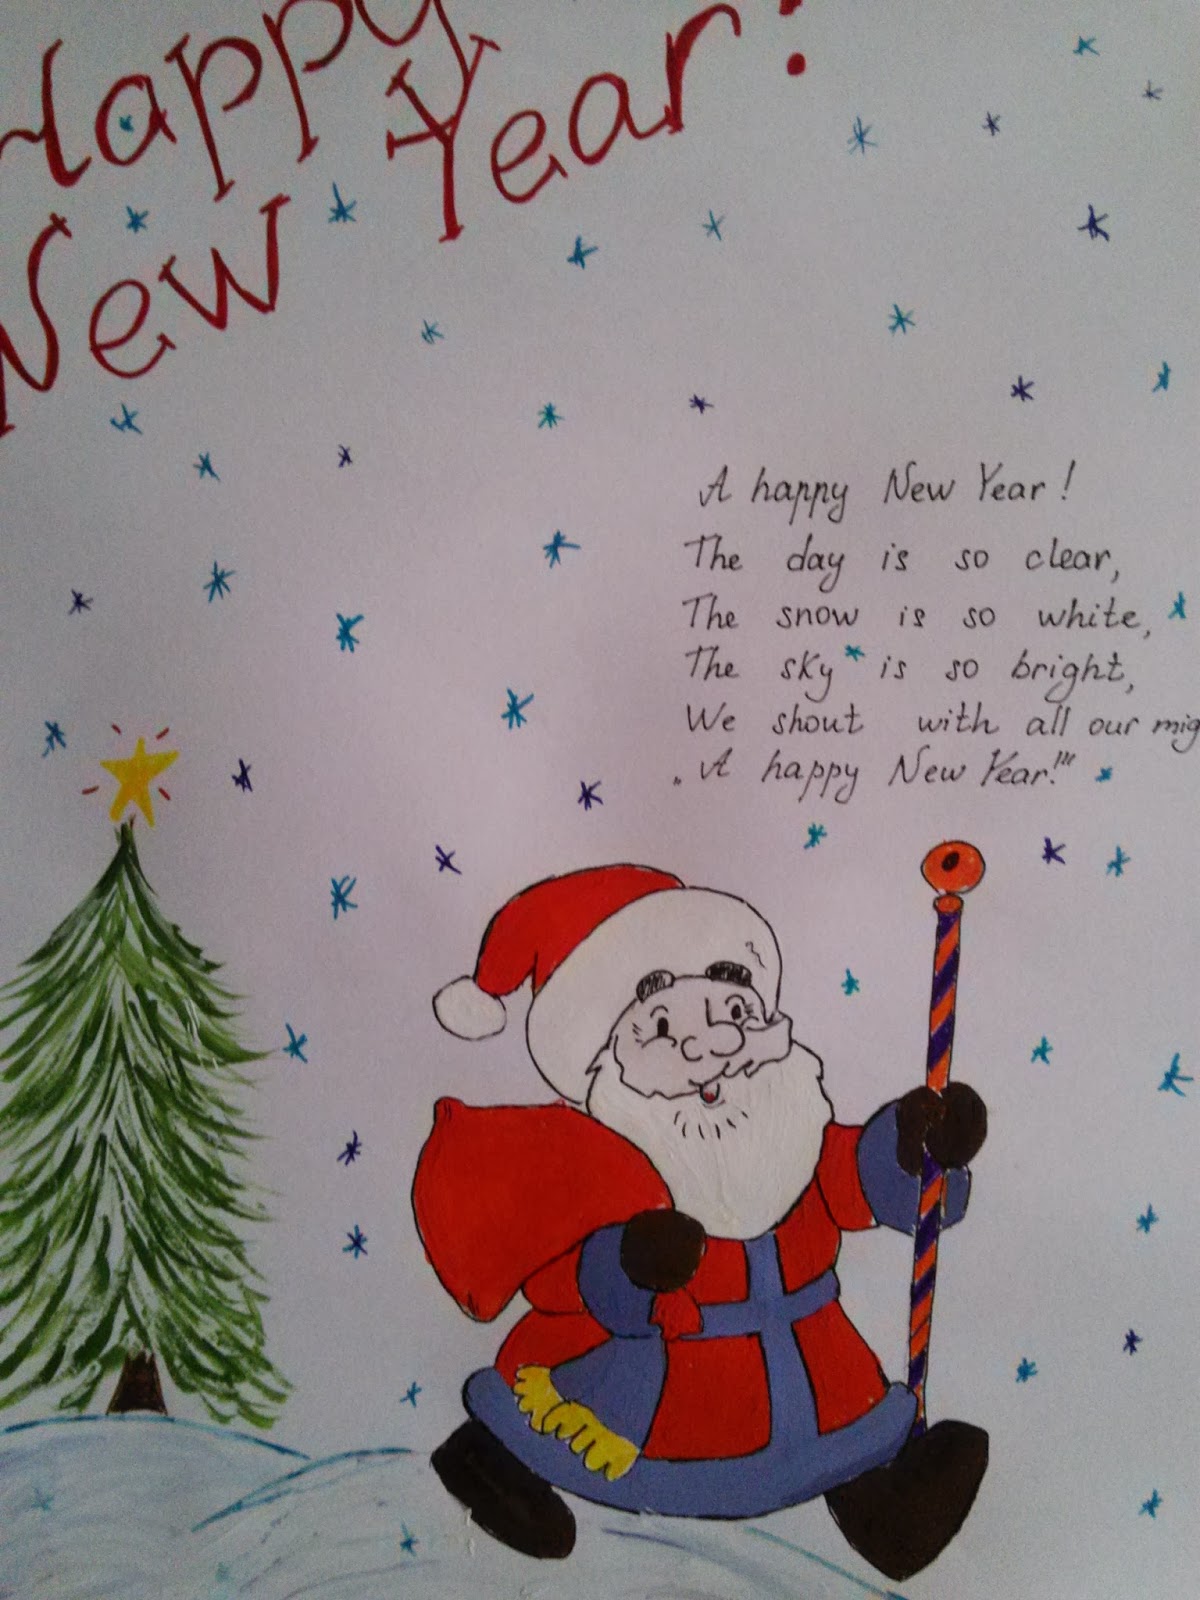 Happy
New Year!
A happy New Year!
The day is so clear,
The snow is so white,
The sky is so bright,
We shout with all our mig
„A happy New Year!"